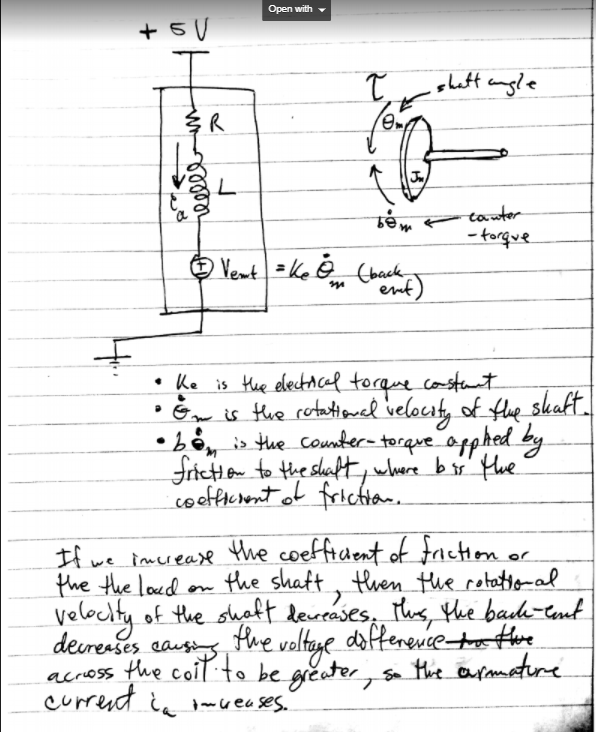 Open with
+ 5V
R
i_a
L
V_emf = K_e θ̇_m (back emf)
τ
shaft angle
θ_m
J_m
bθ̇_m ← counter-torque
• Ke is the electrical torque constant
• θ̇_m is the rotational velocity of the shaft.
• bθ̇_m is the counter-torque applied by
friction to the shaft, where b is the
coefficient of friction.
If we increase the coefficient of friction or
the the load on the shaft, then the rotational
velocity of the shaft decreases. Thus, the back-emf
decreases causing the voltage difference
across the coil to be greater, so the armature
current i_a increases.